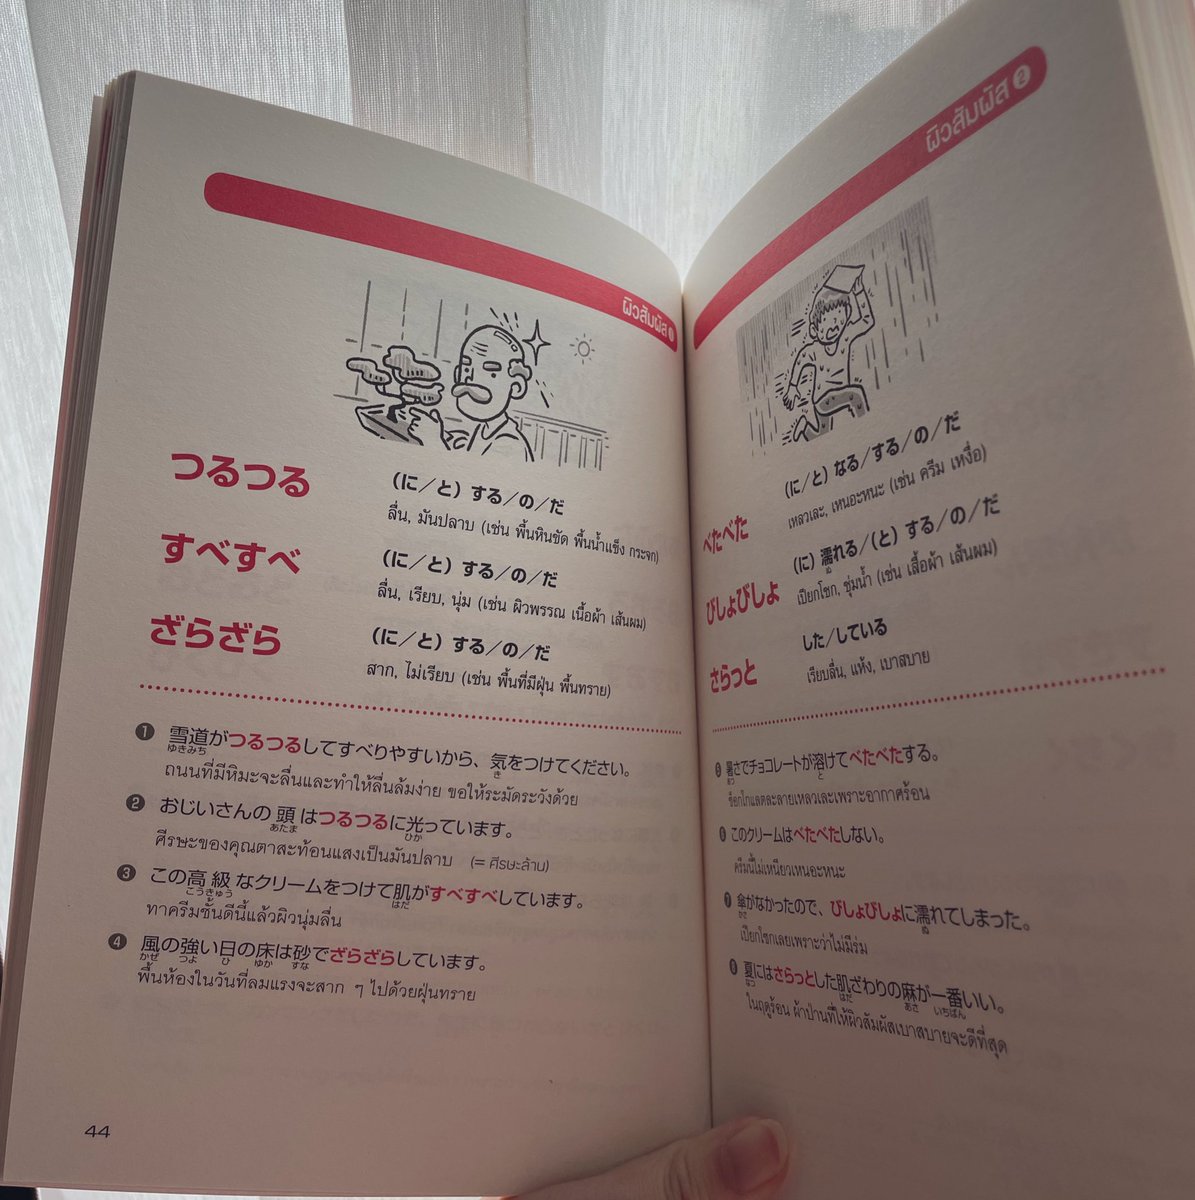 ผิวสัมผัส ❶
つるつる
(に／と) する／の／だ
ลื่น, มันปลาบ (เช่น พื้นหินขัด พื้นน้ำแข็ง กระจก)
すべすべ
(に／と) する／の／だ
ลื่น, เรียบ, นุ่ม (เช่น ผิวพรรณ เนื้อผ้า เส้นผม)
ざらざら
(に／と) する／の／だ
สาก, ไม่เรียบ (เช่น พื้นที่มีฝุ่น พื้นทราย)
❶ 雪道がつるつるしてすべりやすいから、気をつけてください。
ゆきみち き
ถนนที่มีหิมะจะลื่นและทำให้ลื่นล้มง่าย ขอให้ระมัดระวังด้วย
❷ おじいさんの頭はつるつるに光っています。
あたま ひか
ศีรษะของคุณตาสะท้อนแสงเป็นมันปลาบ (= ศีรษะล้าน)
❸ この高級なクリームをつけて肌がすべすべしています。
こうきゅう はだ
ทาครีมชั้นดีนี้แล้วผิวนุ่มลื่น
❹ 風の強い日の床は砂でざらざらしています。
かぜ つよ ひ ゆか すな
พื้นห้องในวันที่ลมแรงจะสาก ๆ ไปด้วยฝุ่นทราย
44
ผิวสัมผัส ❷
べたべた
(に／と) なる／する／の／だ
เหลวเละ, เหนอะหนะ (เช่น ครีม เหงื่อ)
びしょびしょ
(に) 濡れる／(と) する／の／だ
ぬ
เปียกโชก, ชุ่มน้ำ (เช่น เสื้อผ้า เส้นผม)
さらっと
した／している
เรียบลื่น, แห้ง, เบาสบาย
❺ 暑さでチョコレートが溶けてべたべたする。
あつ と
ช็อกโกแลตละลายเหลวเละเพราะอากาศร้อน
❻ このクリームはべたべたしない。
ครีมนี้ไม่เหนียวเหนอะหนะ
❼ 傘がなかったので、びしょびしょに濡れてしまった。
かさ ぬ
เปียกโชกเลยเพราะว่าไม่มีร่ม
❽ 夏にはさらっとした肌ざわりの麻が一番いい。
なつ はだ あさ いちばん
ในฤดูร้อน ผ้าป่านที่ให้ผิวสัมผัสเบาสบายจะดีที่สุด